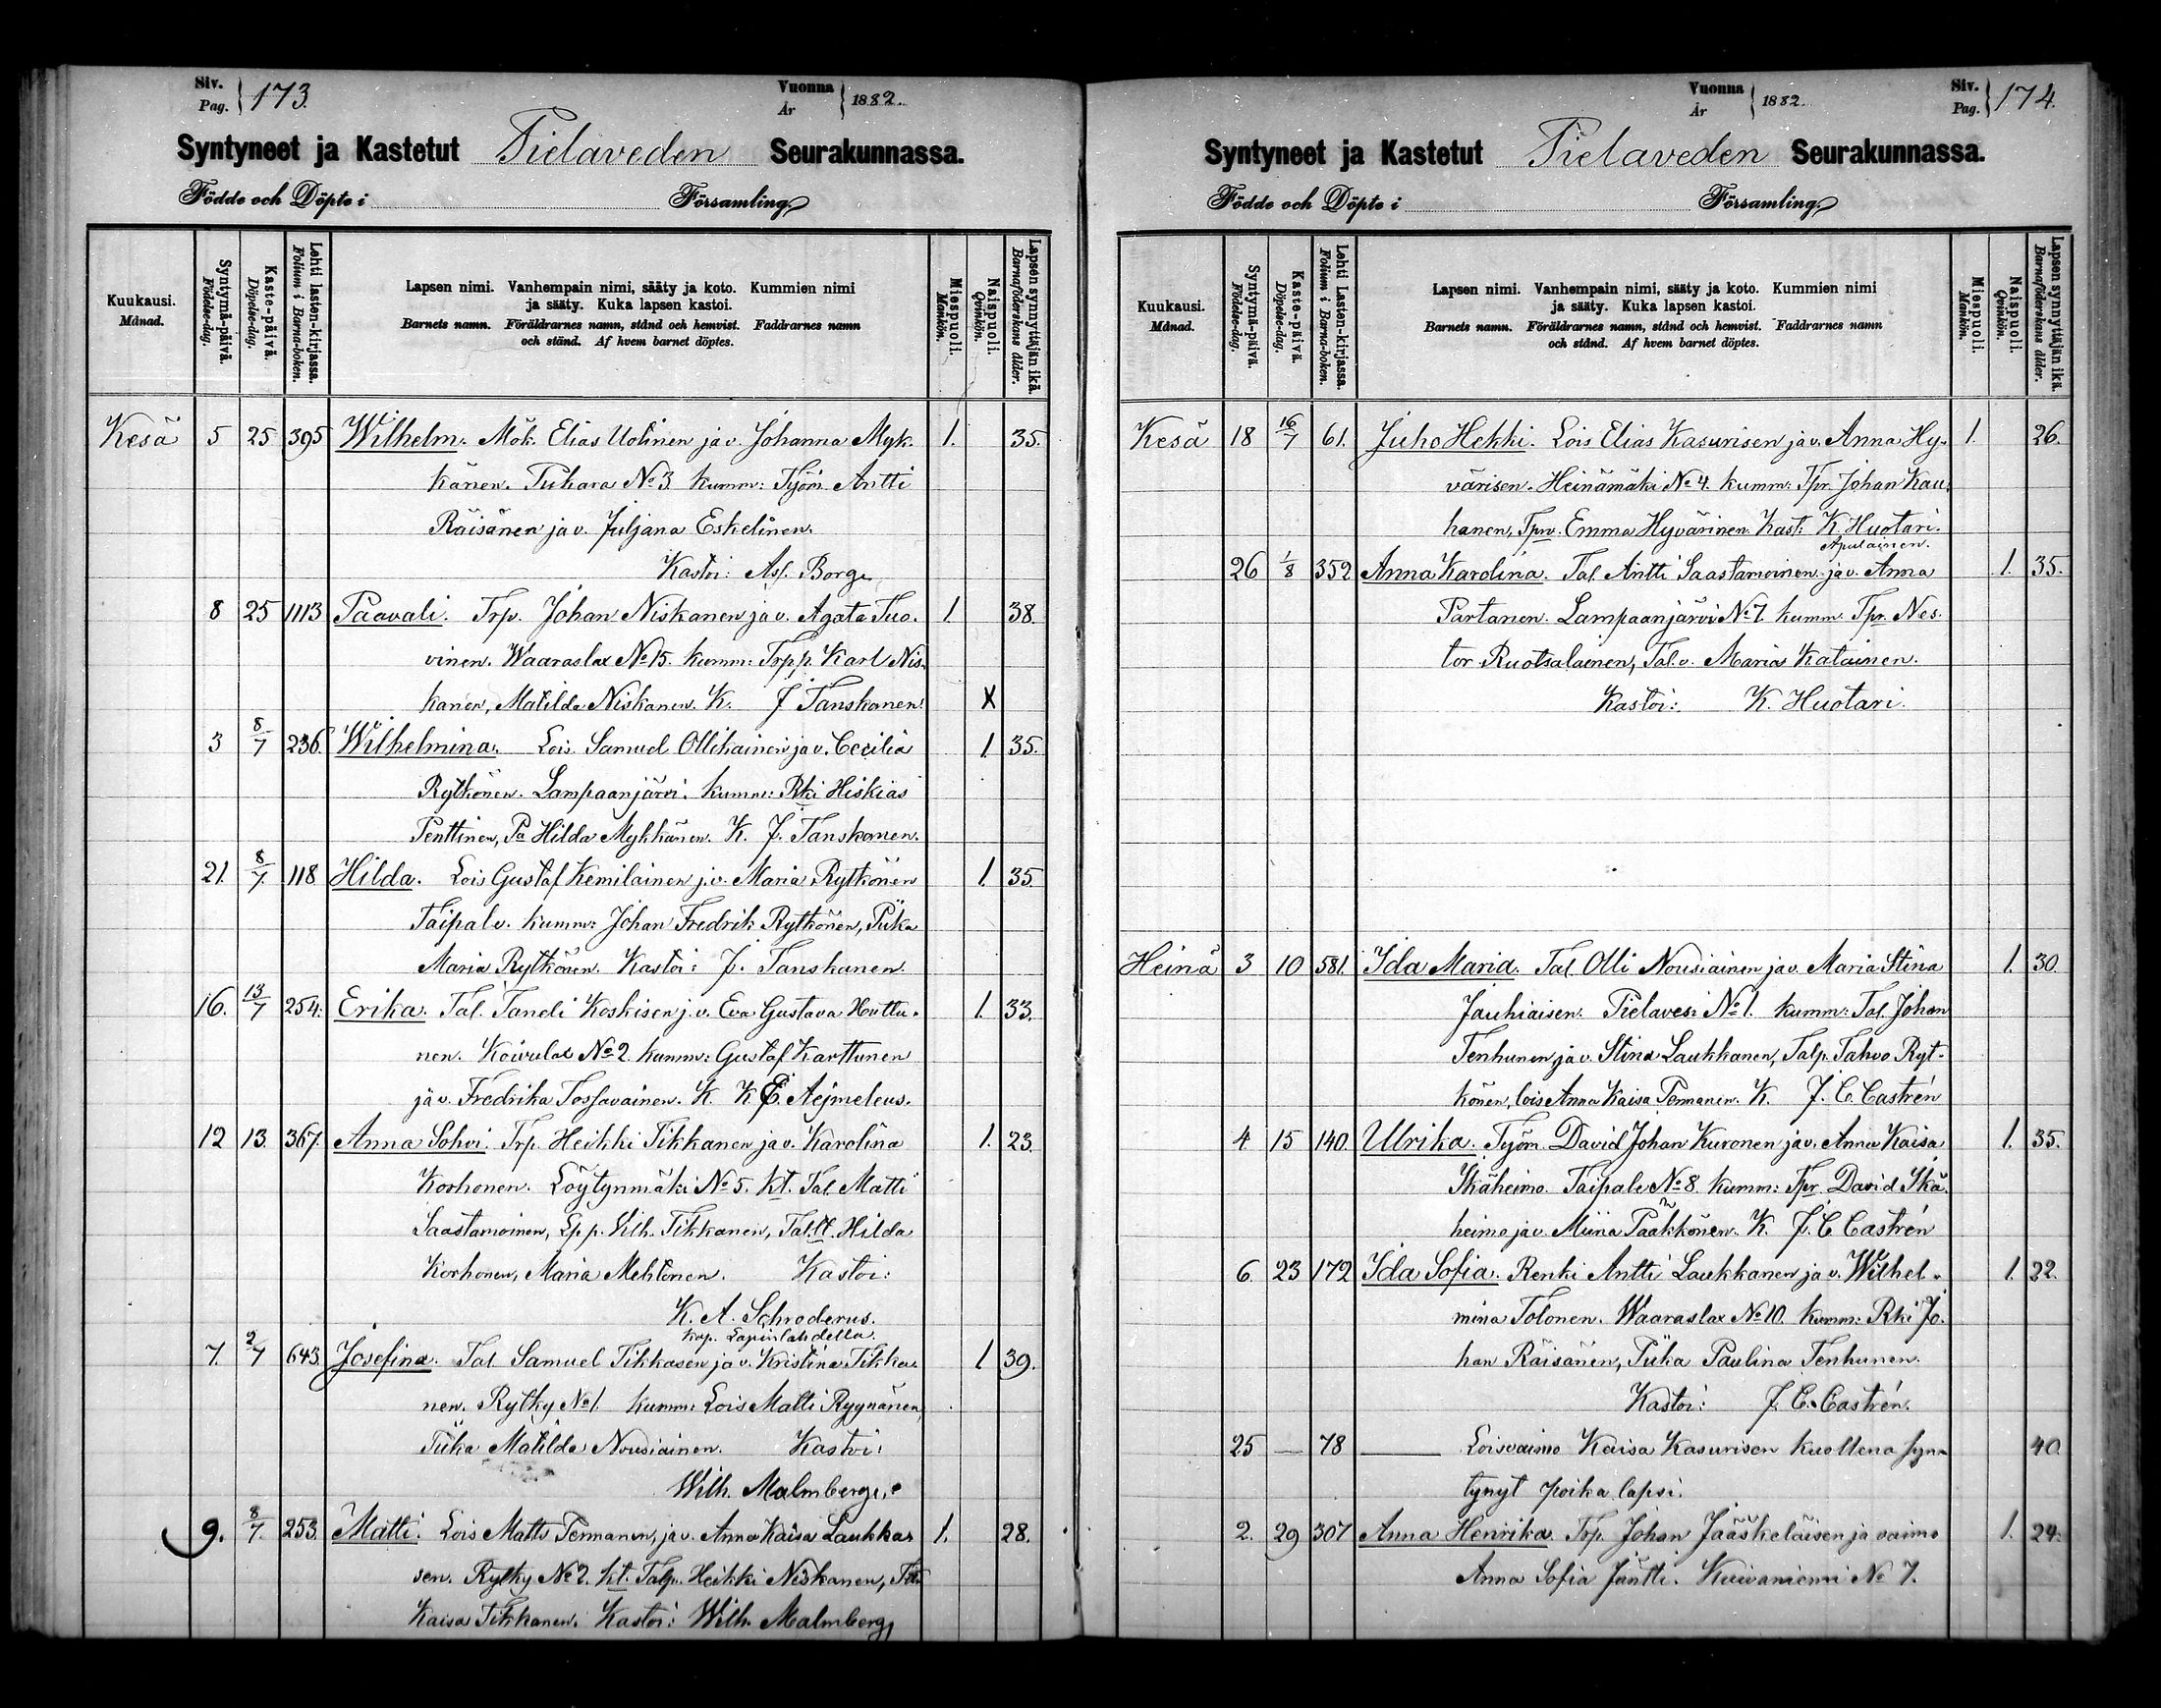 Siv.
Pag. } 173.
Vuonna
År } 1882.
Syntyneet ja Kastetut Pielaveden Seurakunnassa.
Födde och Döpte i Församling.
Kuukausi.
Månad.
Syntymä-päivä.
Födelse-dag.
Kaste-päivä.
Döpelse-dag.
Lehti lasten-kirjassa.
Folium i Barna-boken.
Lapsen nimi. Vanhempain nimi, sääty ja koto. Kummien nimi
ja sääty. Kuka lapsen kastoi.
Barnets namn. Föräldrarnes namn, stånd och hemvist. Faddrarnes namn
och stånd. Af hvem barnet döptes.
Miespuoli.
Mankön.
Naispuoli.
Qvinkön.
Lapsen synnyttäjän ikä.
Barnaföderskans ålder.
Kesä 5 25 395 Wilhelm. Mök. Elias Uotinen ja v. Johanna Myk- 1. 35.
känen. Tuhara No 3. kumm: Työm. Antti
Räisänen ja v. Juljana Eskelinen.
Kastoi: As. Borge
8 25 1113 Paavali. Trp. Johan Niskanen ja v. Agata Tuo- 1. 38.
vinen. Waaraslax No 15. kumm: Trp.p. Karl Nis-
kanen, Matilda Niskanen. K. J Tanskanen. X
3 8/7 236. Wilhelmina. Lois. Samuel Ollikainen ja v. Cecilia 1. 35.
Rytkönen. Lampaanjärvi. kumm: Rki Hiskias
Penttinen, Pa Hilda Mykkänen. K. J. Tanskanen.
21. 8/7. 118 Hilda. Lois Gustaf Kemilainen j.v. Maria Rytkönen 1. 35.
Taipal v. kumm: Johan Fredrik Rytkönen, Piika
Maria Rytkönen. Kastoi: J. Tanskanen.
16. 13/7 254. Erika. Tal. Taneli Koskisen j.v. Eva Gustava Huttu- 1. 33.
nen. Koivulax No 2. kumm: Gustaf Karttunen
ja v. Fredrika Tossavainen. K. K. E. Aejmeleus.
12 13. 367. Anna Sohvi. Trp. Heikki Tikkanen ja v. Karolina 1. 23.
Korhonen. Löytynmäki No 5. kt. Tal. Matti
Saastamoinen, Lp p. Vilh. Tikkanen, Tal.tt. Hilda
Korhonen, Maria Mehtonen. Kastoi:
K. A. Schroderus.
Kap. Lapinlahdella.
7. 2/7 643. Josefina. Tal. Samuel Tikkasen ja v. Kristina Tikka- 1 39.
nen. Rytky No 1. kumm: Lois Matti Ryynänen,
Tiika Matilda Nousiainen. Kastoi:
Wilh. Malmberg.
9. 8/7. 253. Matti. Lois Matts Pennanen, ja v. Anna Kaisa Laukka- 1. 28.
sen. Rytky No 2. kt. Talp. Heikki Niskanen,
Kaisa Tikkanen. Kastoi: Wilh. Malmberg,
Vuonna
År } 1882.
Siv.
Pag. } 174.
Syntyneet ja Kastetut Pielaveden Seurakunnassa.
Födde och Döpte i Församling.
Kuukausi.
Månad.
Syntymä-päivä.
Födelse-dag.
Kaste-päivä.
Döpelse-dag.
Lehti Lasten-kirjassa.
Folium i Barna-boken.
Lapsen nimi. Vanhempain nimi, sääty ja koto. Kummien nimi
ja sääty. Kuka lapsen kastoi.
Barnets namn. Föräldrarnes namn, stånd och hemvist. Faddrarnes namn
och stånd. Af hvem barnet döptes.
Miespuoli.
Mankön.
Naispuoli.
Qvinkön.
Lapsen synnyttäjän ikä.
Barnaföderskans ålder.
Kesä 18 16/7 61. Juho Heikki. Lois Elias Kasurisen ja v. Anna Hy- 1. 26.
värisen. Heinämäki No 4. kumm: Tpr. Johan Kau-
hanen, Tprv. Emma Hyvärinen. Kast: K. Huotari.
Apulainen.
26 1/8 352 Anna Karolina. Tal. Antti Saastamoinen ja v. Anna 1. 35.
Partanen. Lampaanjärvi No 7. kumm: Tpr. Nes-
tor Ruotsalainen, Tal.v. Maria Katainen.
Kastoi: K. Huotari.
Heinä 3 10 581. Ida Maria. Tal. Olli Nousiainen ja v. Maria Stina 1. 30.
Jauhiaisen. Pielavesi No 1. kumm: Tal. Johan
Tenhunen ja v. Stina Laukkanen, Talp. Tahvo Ryt-
könen, lois Anna Kaisa Pennanen. K. J. C. Castrén
4 15 140. Ulrika. Työm. David Johan Kuronen ja v. Anna Kaisa 1. 35.
Ikäheimo. Taipale No 8. kumm: Tpr. David Ikä-
heimo ja v. Miina Paakkönen. K. J. C. Castrén
6. 23 172 Ida Sofia. Renki Antti Laukkanen ja v. Wilhel- 1. 22.
mina Tolonen. Waaraslax No 10. kumm: Rki Jo-
han Räisänen, Tiika Paulina Tenhunen.
Kastoi: J. C. Castrén.
25 — 78 — Loisvaimo Kaisa Kasurisen kuollena syn- 40
tynyt poika lapsi.
2. 29 307 Anna Henrika. Trp. Johan Jääskeläisen ja vaimo 1. 24.
Anna Sofia Jäntti. Kuivaniemi No 7.